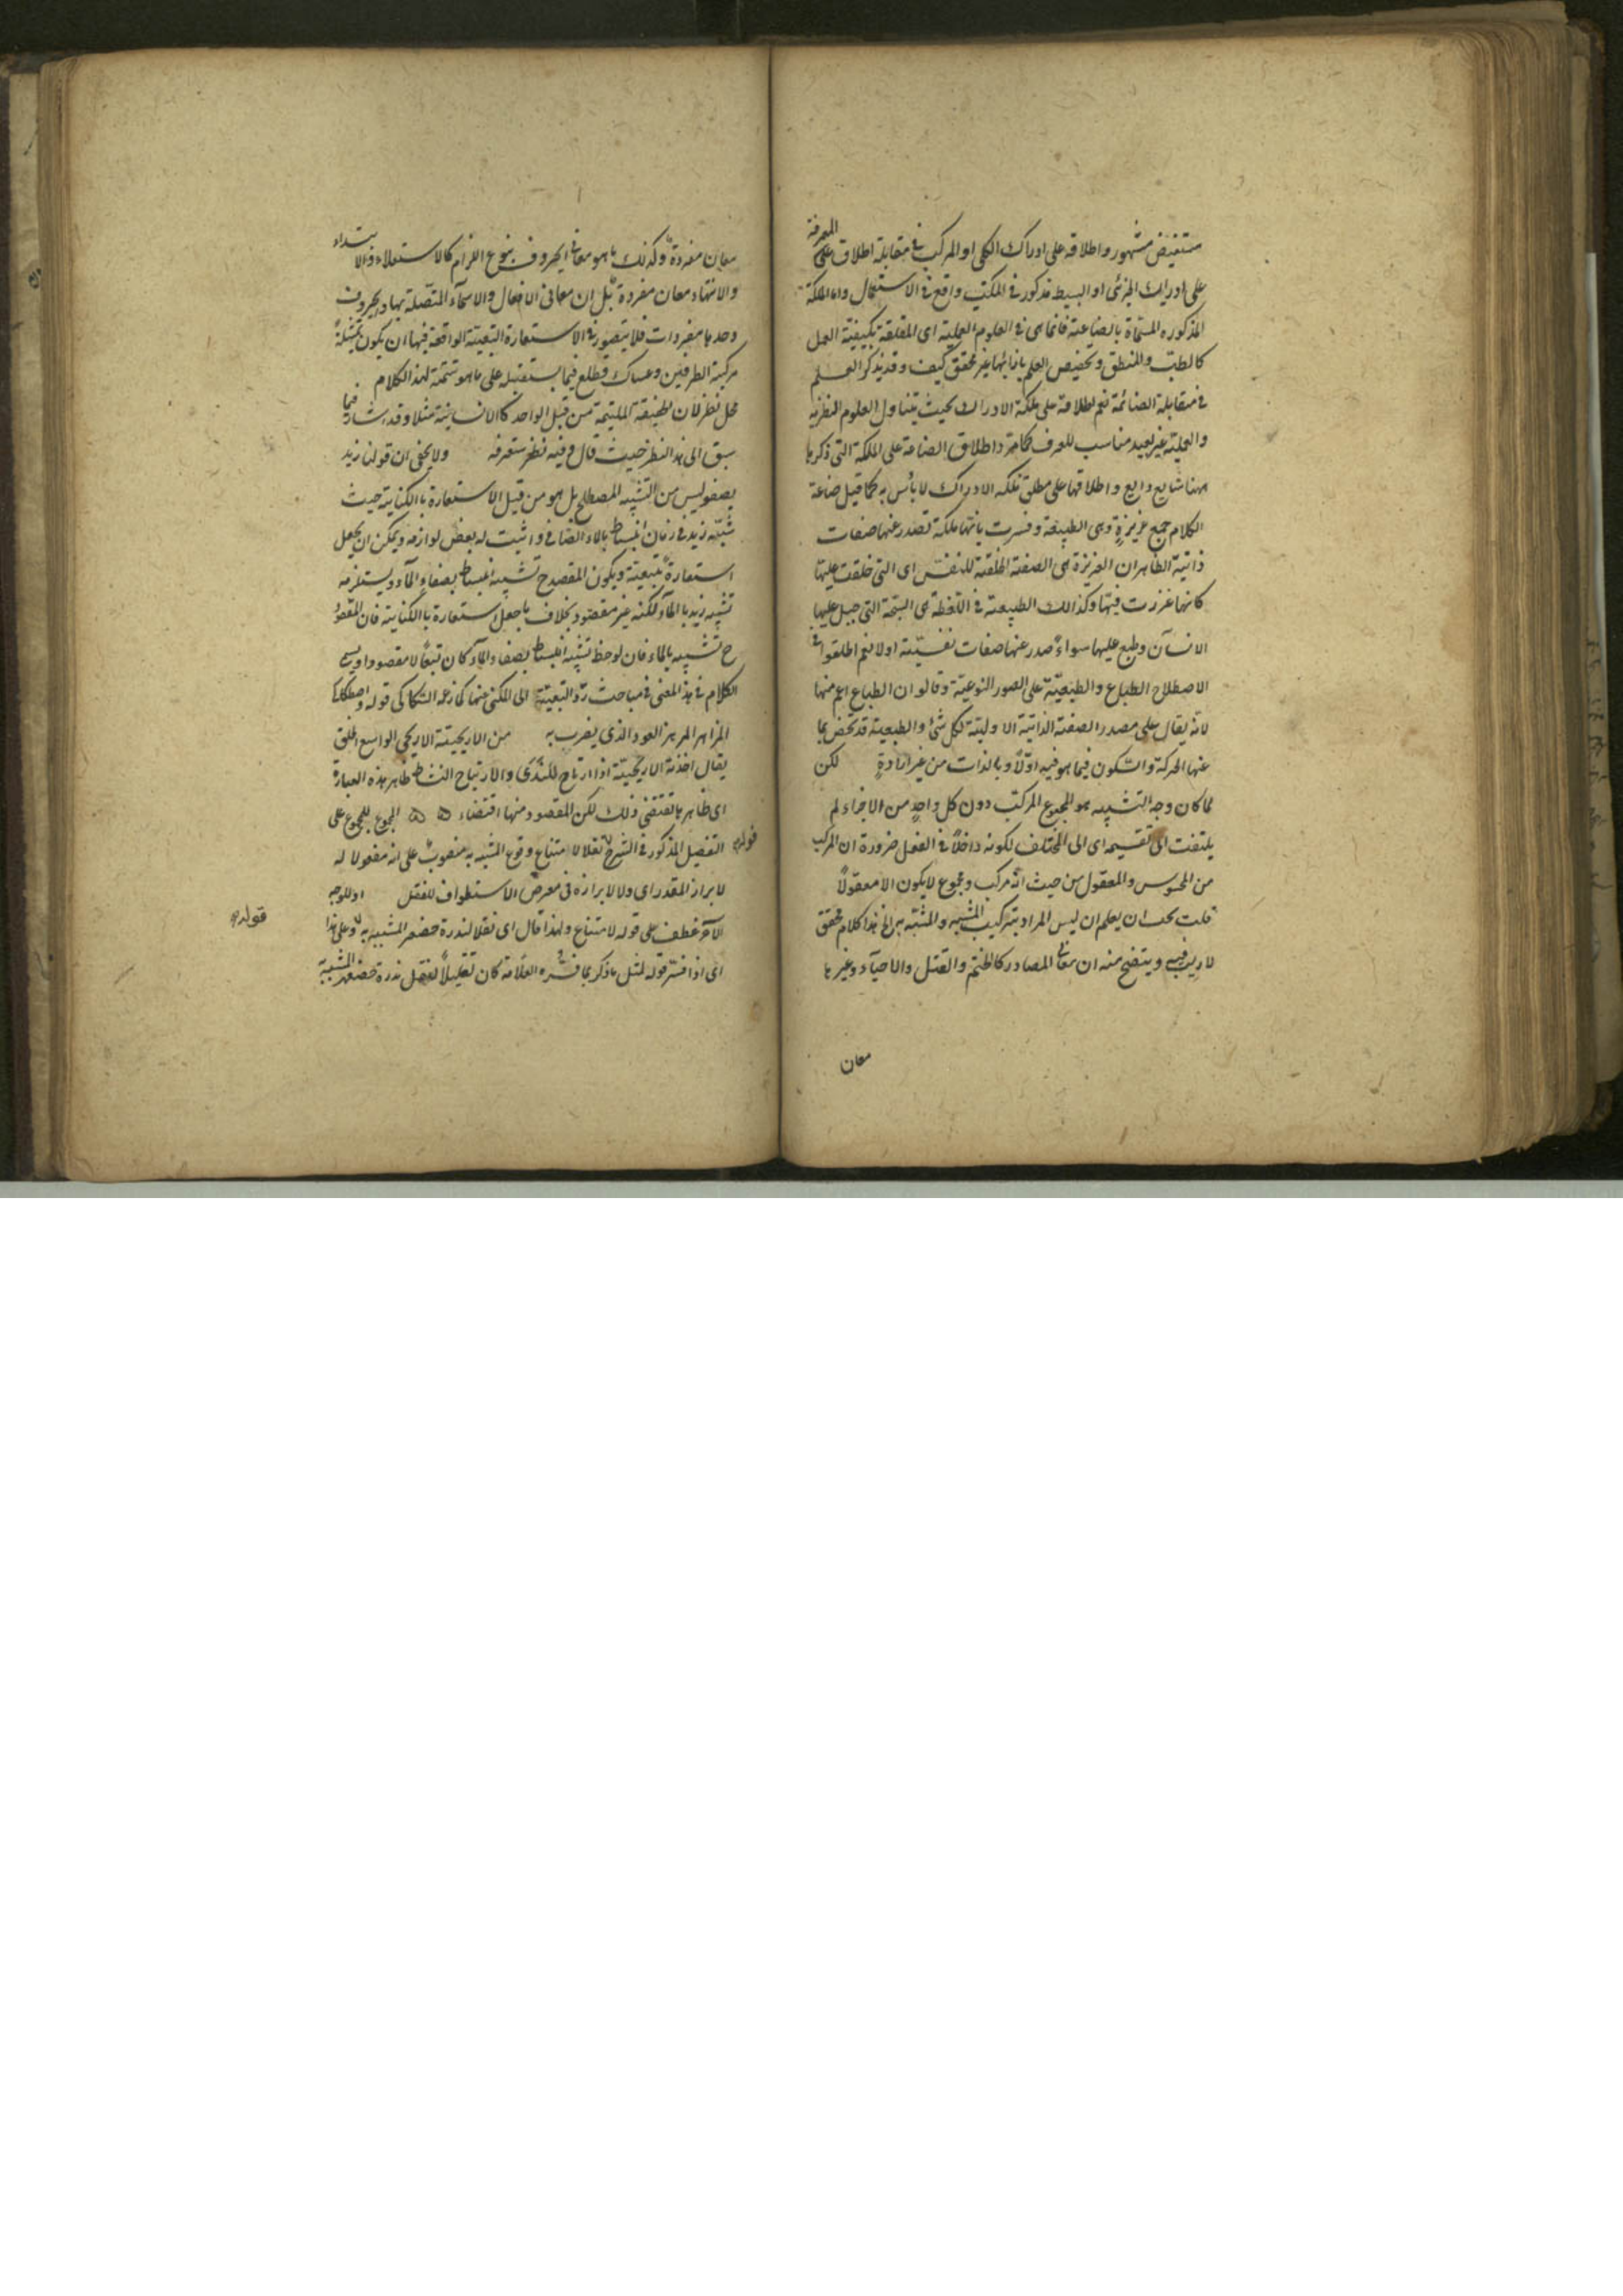 مستفيض مشهور واطلاقه على ادراك الكلى او المركب فى مقابلة اطلاق المعرفة
على ادراك الجزئى او البسيط مذكور فى الكتب واقع فى الاستعمال واما الملكة
المذكوره المسماة بالصناعة فانما هى فى العلوم العملية اى المتعلقة بكيفية العمل
كالطب والمنطق وتخصيص العلم بازائها غير محقق كيف وقد يذكر العلم
فى مقابلة الصناعة نعم اطلاقه على ملكة الادراك بحيث يتناول العلوم النظرية
والعملية غير بعيد مناسب للعرف كما مر واطلاق الصناعة على الملكة التى ذكرها
ههنا شايع ذايع واطلاقها على مطلق ملكه الادراك لا بأس به كما قيل صناعة
الكلام جمع غريزة وهى الطبيعة وفسرت بانها ملكة تصدر عنها صفات
ذاتية الظاهر ان الغريزة هى الصفة الخلقية للنفس اى التى خلقت عليها
كانها غرزت فيها وكذالك الطبيعة فى اللغة هى السجية التى جبل عليها
الانسان وطبع عليها سواء صدر عنها صفات نفسية اولا نعم اطلقوا فى
الاصطلاح الطباع والطبيعة على الصور النوعية وقالو ان الطباع اعم منها
لانه يقال على مصدر الصفة الذاتية الاولية لكل شئ والطبيعة قد تخص بما
عنها الحركة والسكون فيما هو فيه اولا وبالذات من غير ارادة لكن
لما كان وجه التشبيه هو المجموع المركب دون كل واحد من الاجزاء لم
يلتفت الى تقسيمه اى الى المختلف لكونه داخلا فى العقلى ضرورة ان المركب
من المحسوس والمعقول من حيث انه مركب ومجموع لا يكون الا معقولا
قلت يجب ان يعلم ان ليس المراد بتركيب المشبه والمشبه به الخ هذا كلام محقق
لا ريب فيه ويتضح منه ان معانى المصادر كالختم والقتل والاحياء وغيرها
معان
معان مفردة وكذلك ما هو معانى الحروف بنوع التزام كالاستعلاء والابتداء
والانتهاء معان مفردة بل ان معانى الافعال والاسماء المتصلة بها والحروف
وحدها مفردات فلا يتصور فى الاستعارة التبعية الواقعة فيها ان يكون تمثيلة
مركبة الطرفين وعساك تطلع فيما يستقبله على ما هو تتمة لهذا الكلام
محل نظر لان الحقيقة الملتئمة من قبيل الواحد كالانسانية مثلا وقد اشار فيما
سبق الى هذا النظر حيث قال وفيه نظر ستعرفه ولا يخفى ان قولنا زيد
يصفو ليس من التشبيه المصطلح بل هو من قبيل الاستعارة بالكناية حيث
شبه زيد فى زمان انبساطه بالماء الصافى واثبت له بعض لوازمه ويمكن ان يجعل
استعارة تبعية ويكون المقصد ح تشبيه انبساطه بصفاء الماء ويستلزمه
تشبيه زيد بالماء لكنه غير مقصود بخلاف ما جعل استعارة بالكناية فان المقصود
ح تشبيهه بالماء فان لوحظ تشبيه انبساطه بصفاء الماء كان تبعا لا مقصودا
الكلام فى هذا المعنى فى مباحث رد التبعية الى المكنى عنها كما زعمه السكاكى قوله واصطكاك
المزاهر المزهر العود الذى يضرب به من الاريحية الاريحى الواسع الخلق
يقال اخذته الاريحية اذا ارتاح للندى والارتياح النشاط ظاهر هذه العبارة
اى ظاهرها تقتضى ذلك لكن المقصود منها اقتضاء المجموع للمجموع على
التفصيل المذكور فى الشرح تقلا لامتناع وقوع المشبه به منصوب على انه مفعول له
لابراز المقدر اى ولا لابرازه فى معرض الاستطراف للفضل او للوجه
الآخر عطف على قوله لامتناع ولهذا قال اى نقلا لندرة حضور المشبه به وعلى هذا
اى اذا فسر قوله لمثل ما ذكر بما فسره العلامة كان تعليلا لنقل ندرة حضور المشبه
قوله
قوله